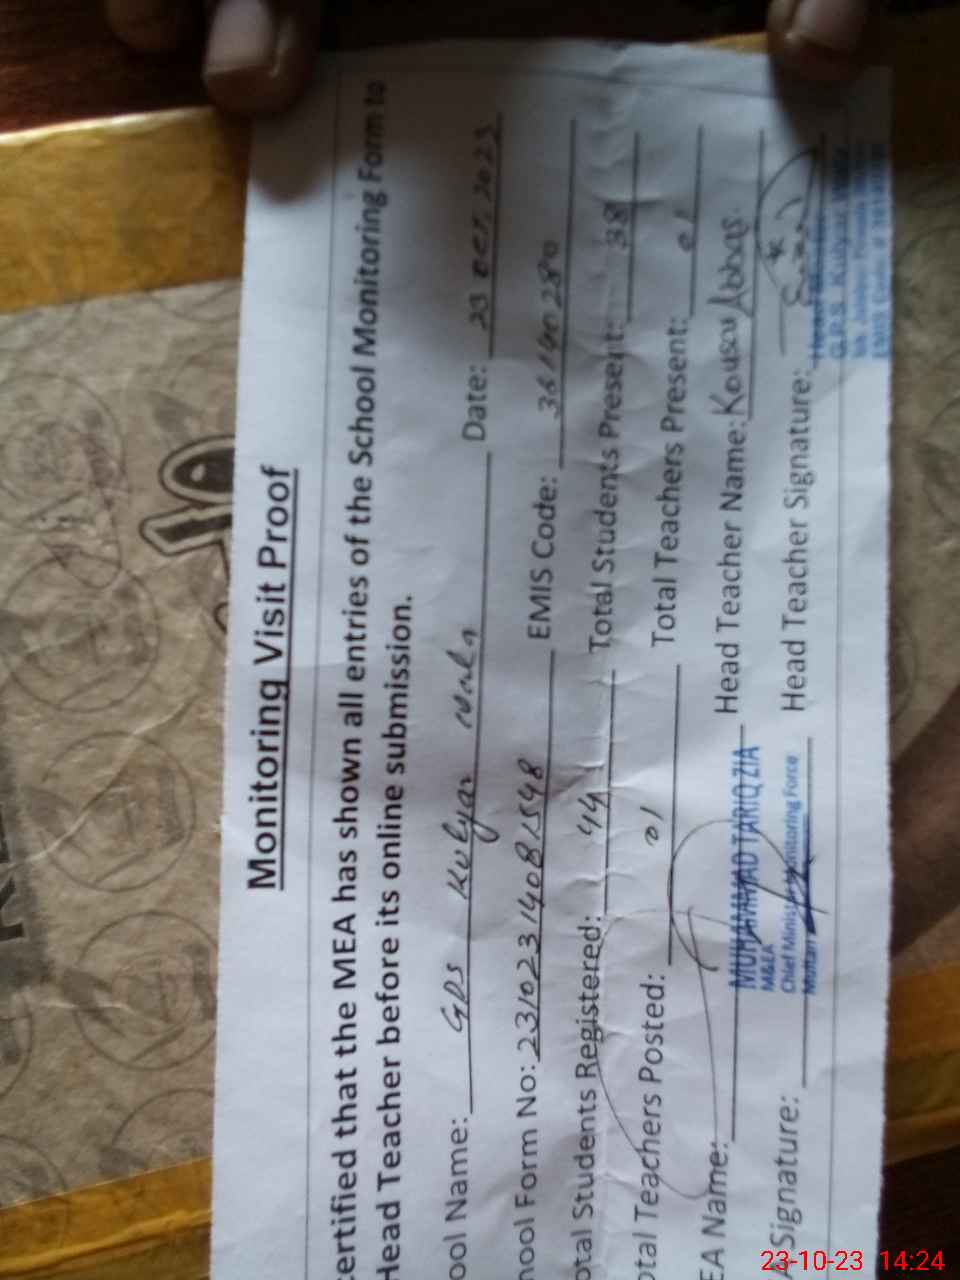 Monitoring Visit Proof
certified that the MEA has shown all entries of the School Monitoring Form to
Head Teacher before its online submission.
ool Name: GPS Kulyar Wala Date: 23 OCT, 2023
hool Form No: 23102314081548 EMIS Code: 36140280
otal Students Registered: 44 Total Students Present: 38
otal Teachers Posted: 01 Total Teachers Present: 01
EA Name: MUHAMMAD TARIQ ZIA Head Teacher Name: Kousar Abbas
M&EA
Chief Minister Monitoring Force
Multan
A Signature: Head Teacher Signature:
G.P.S. Kulyar Wala
23-10-23 14:24